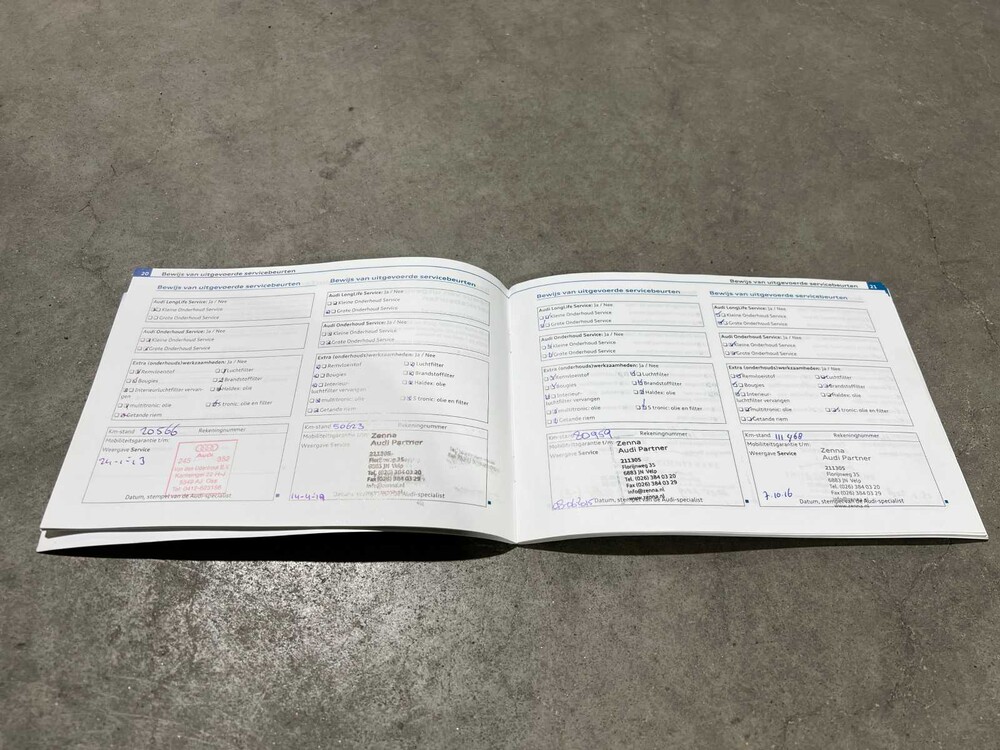 20 Bewijs van uitgevoerde servicebeurten
Bewijs van uitgevoerde servicebeurten
Audi LongLife Service: Ja / Nee
Kleine Onderhoud Service
Grote Onderhoud Service
Audi Onderhoud Service: Ja / Nee
Kleine Onderhoud Service
Grote Onderhoud Service
Extra (onderhouds)werkzaamheden: Ja / Nee
Remvloeistof Luchtfilter
Bougies Brandstoffilter
Interieurluchtfilter vervan- Haldex: olie
gen
multitronic: olie S tronic: olie en filter
Getande riem
Km-stand 20566 Rekeningnummer
Mobiliteitsgarantie t/m:
Weergave Service
Audi
Datum, stempel van de Audi-specialist
Bewijs van uitgevoerde servicebeurten
Audi LongLife Service: Ja / Nee
Kleine Onderhoud Service
Grote Onderhoud Service
Audi Onderhoud Service: Ja / Nee
Kleine Onderhoud Service
Grote Onderhoud Service
Extra (onderhouds)werkzaamheden: Ja / Nee
Remvloeistof Luchtfilter
Bougies Brandstoffilter
Interieur- Haldex: olie
luchtfilter vervangen
multitronic: olie S tronic: olie en filter
Getande riem
Km-stand 50623 Rekeningnummer
Mobiliteitsgarantie t/m:
Weergave Service
Zenna
Audi Partner
211305
6883 JN Velp
Tel. (026) 384 03 20
Fax (026) 384 03 29
Datum, stempel van de Audi-specialist
Bewijs van uitgevoerde servicebeurten 21
Bewijs van uitgevoerde servicebeurten
Audi LongLife Service: Ja / Nee
Kleine Onderhoud Service
Grote Onderhoud Service
Audi Onderhoud Service: Ja / Nee
Kleine Onderhoud Service
Grote Onderhoud Service
Extra (onderhouds)werkzaamheden: Ja / Nee
Remvloeistof Luchtfilter
Bougies Brandstoffilter
Interieur- Haldex: olie
luchtfilter vervangen
multitronic: olie S tronic: olie en filter
Getande riem
Km-stand 80959 Rekeningnummer
Mobiliteitsgarantie t/m:
Weergave Service
Zenna
Audi Partner
211305
Florijnweg 35
6883 JN Velp
Tel. (026) 384 03 20
Fax (026) 384 03 29
info@zenna.nl
www.zenna.nl
Datum, stempel van de Audi-specialist
Bewijs van uitgevoerde servicebeurten
Audi LongLife Service: Ja / Nee
Kleine Onderhoud Service
Grote Onderhoud Service
Audi Onderhoud Service: Ja / Nee
Kleine Onderhoud Service
Grote Onderhoud Service
Extra (onderhouds)werkzaamheden: Ja / Nee
Remvloeistof Luchtfilter
Bougies Brandstoffilter
Interieur- Haldex: olie
luchtfilter vervangen
multitronic: olie S tronic: olie en filter
Getande riem
Km-stand 111 968 Rekeningnummer
Mobiliteitsgarantie t/m:
Weergave Service
Zenna
Audi Partner
211305
Florijnweg 35
6883 JN Velp
Tel. (026) 384 03 20
Fax (026) 384 03 29
info@zenna.nl
www.zenna.nl
7.10.16
Datum, stempel van de Audi-specialist